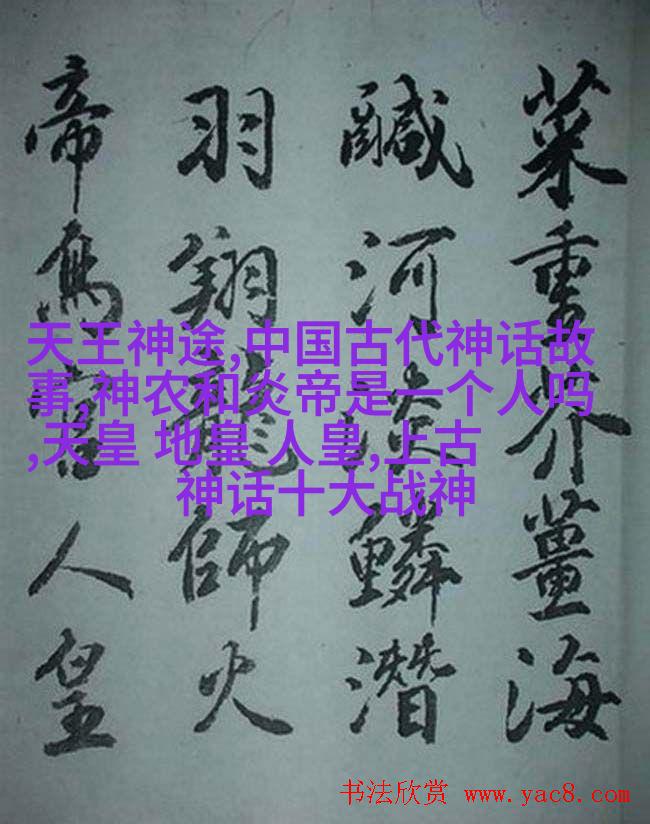 菜重芥薑海
鹹河淡鱗潛
羽翔龍師火
帝鳥官人皇
天王神途,中国古代神话故
事,神农和炎帝是一个人吗
,天皇 地皇 人皇,上古
神话十大战神
书法欣赏 www.yac8.com